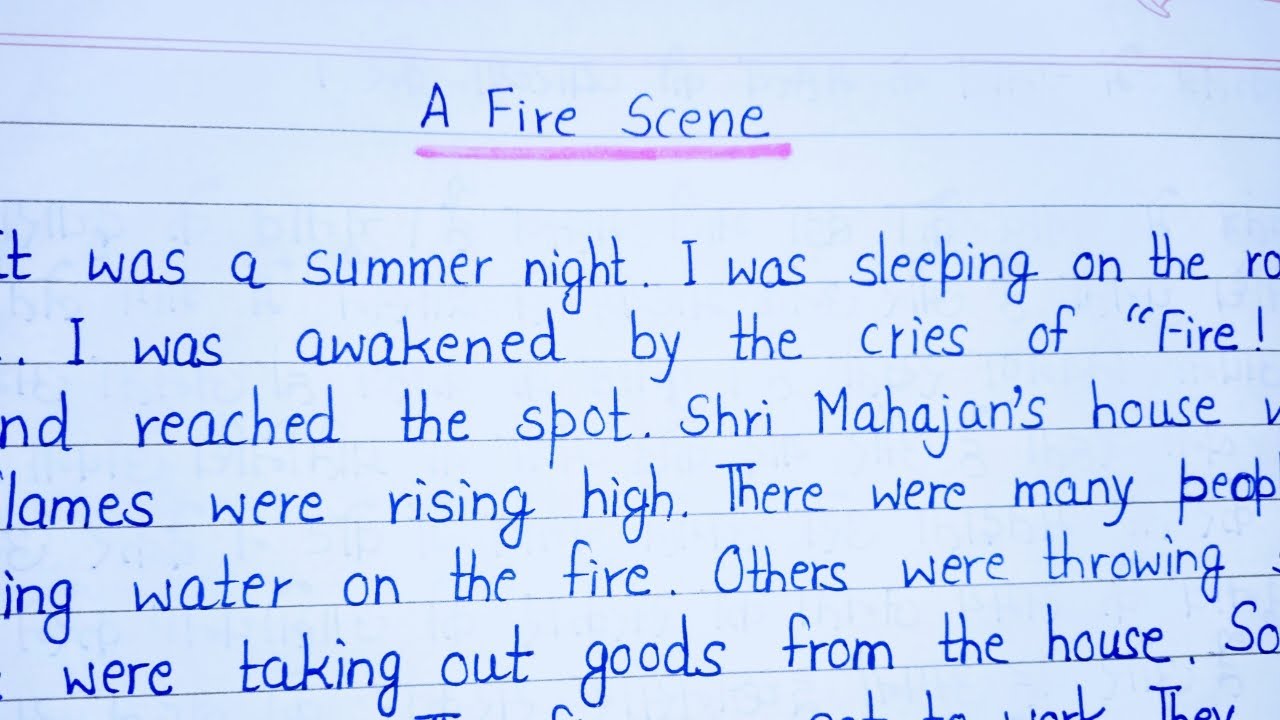 A Fire Scene
It was a summer night. I was sleeping on the
I was awakened by the cries of "Fire!
reached the spot. Shri Mahajan's house
were rising high. There were many
water on the fire. Others were throwing
were taking out goods from the house.
to work They